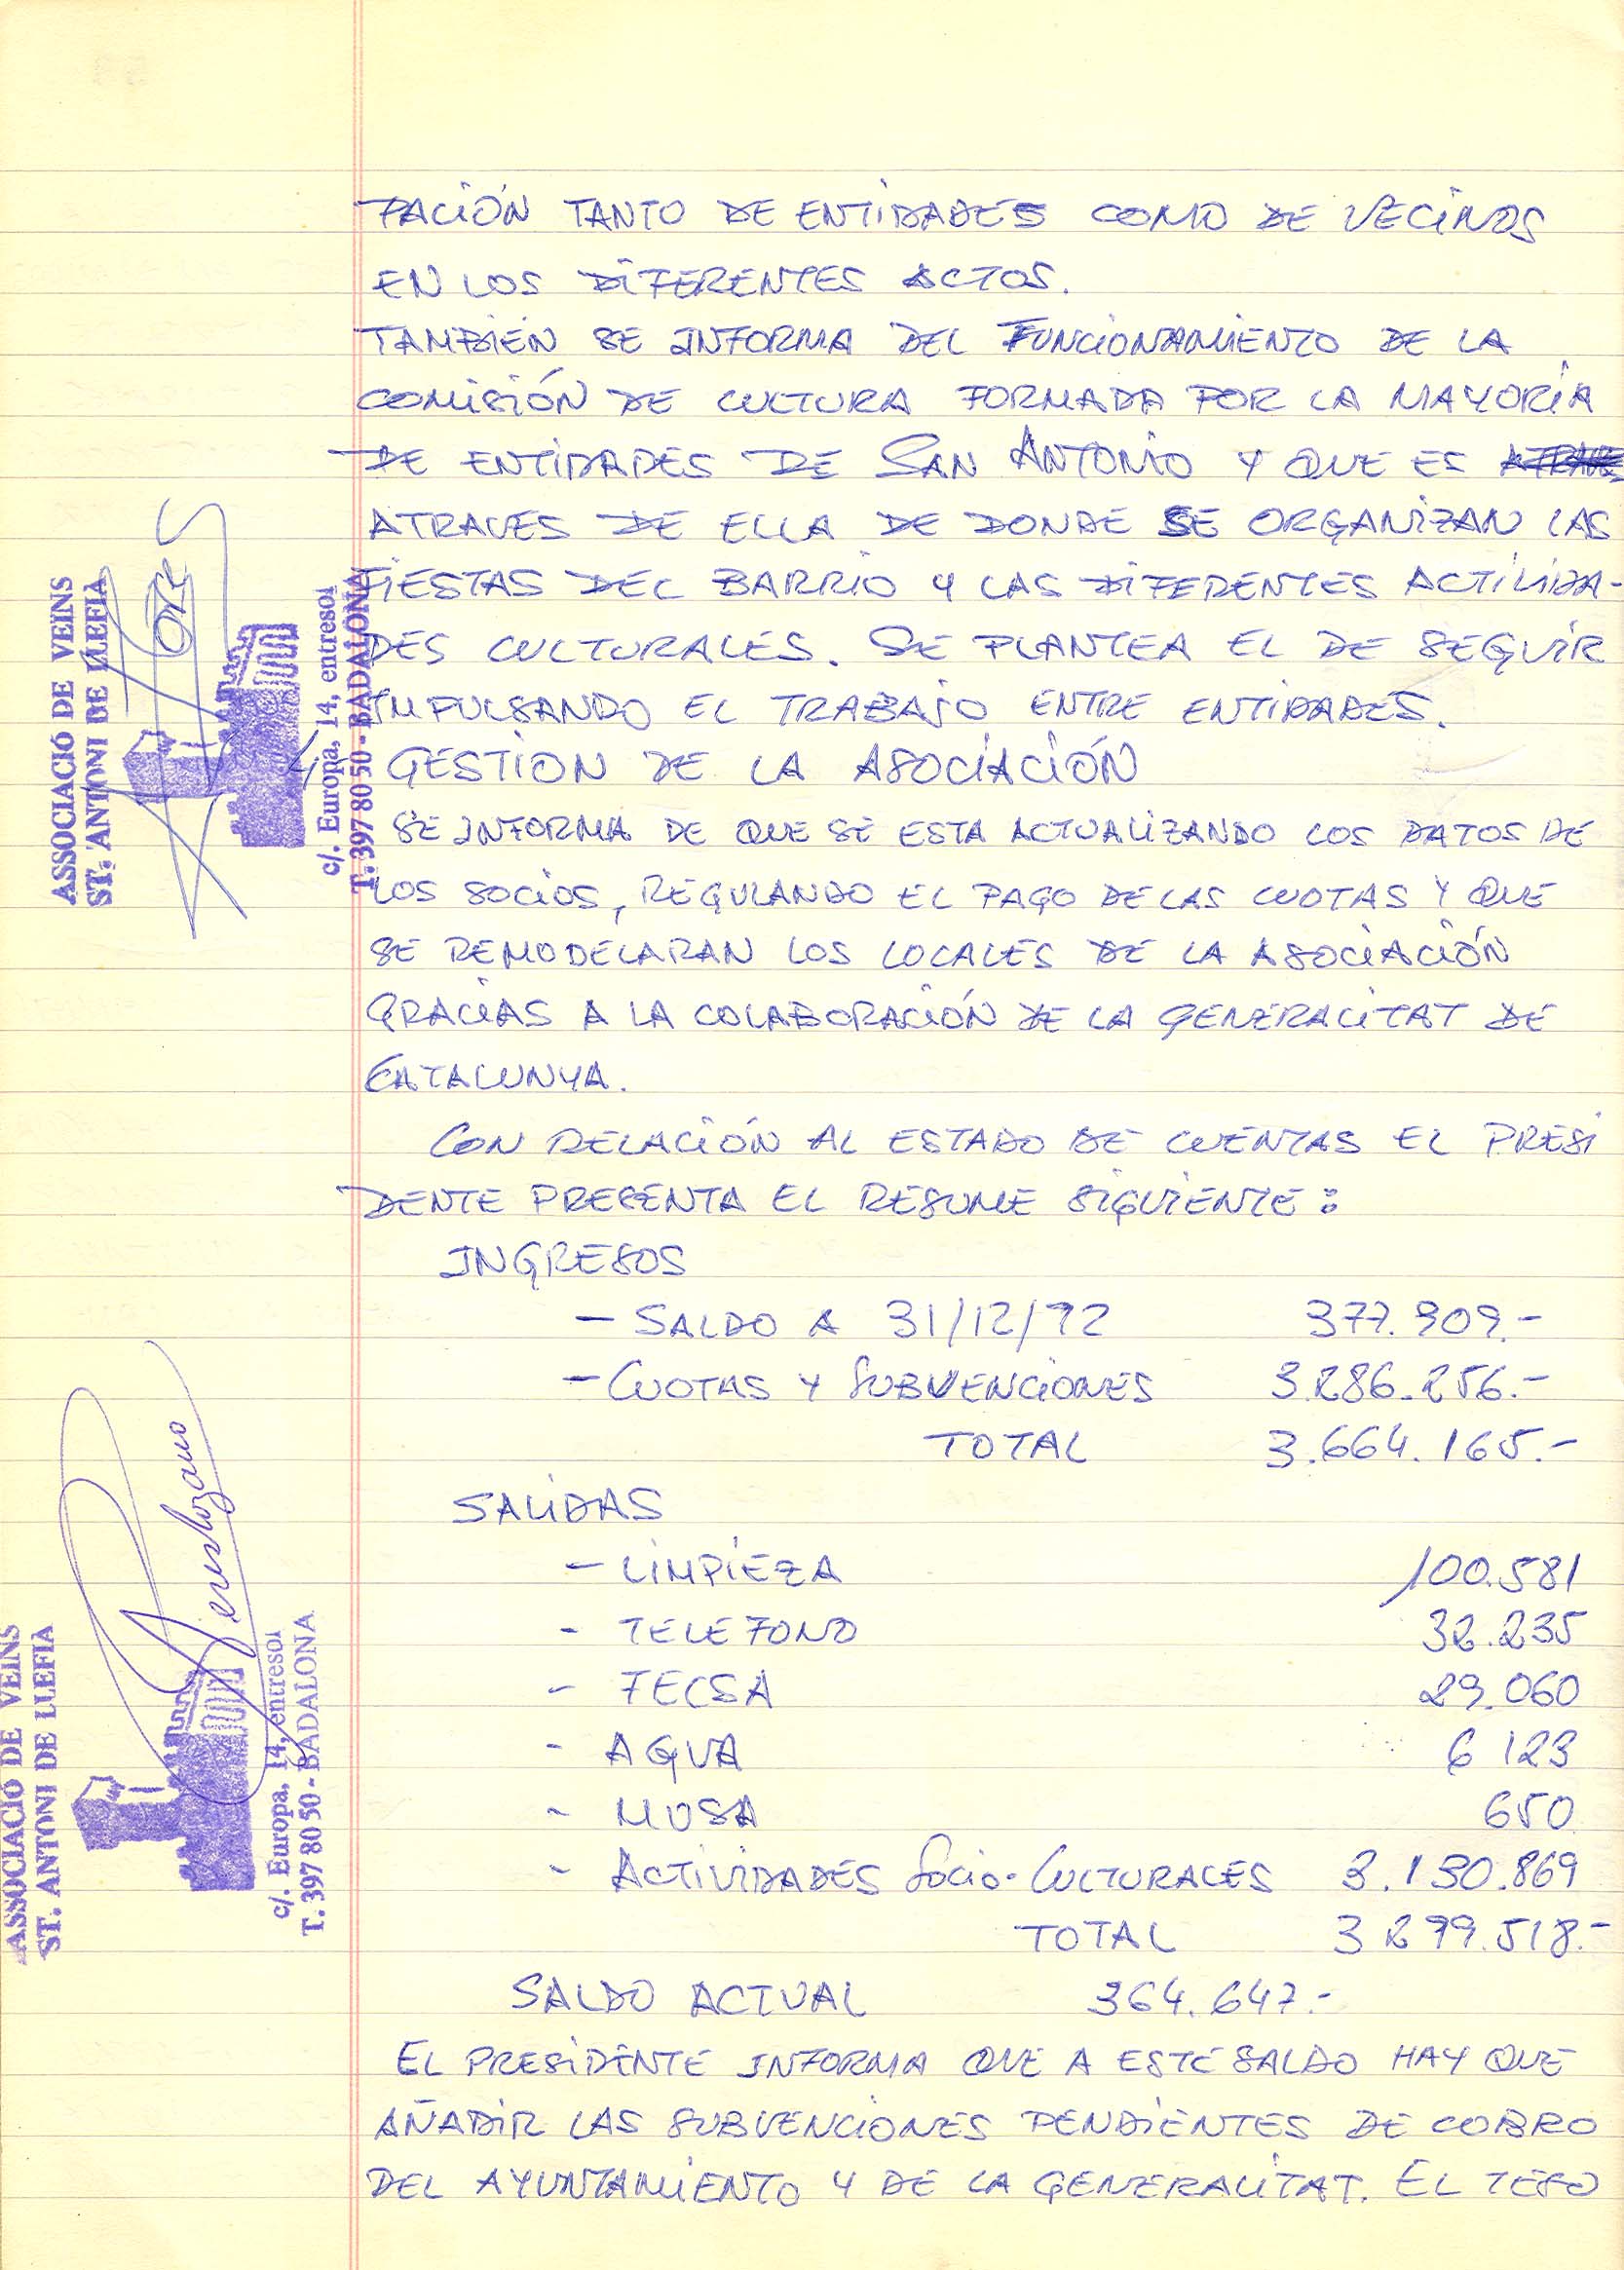 PACIÓN TANTO DE ENTIDADES COMO DE VECINOS
EN LOS DIFERENTES ACTOS.
TAMBIÉN SE INFORMA DEL FUNCIONAMIENTO DE LA
COMISIÓN DE CULTURA FORMADA POR LA MAYORÍA
DE ENTIDADES DE SAN ANTONIO Y QUE ES
ATRAVES DE ELLA DE DONDE SE ORGANIZAN LAS
FIESTAS DEL BARRIO Y LAS DIFERENTES ACTIVIDA-
DES CULTURALES. SE PLANTEA EL DE SEGUIR
IMPULSANDO EL TRABAJO ENTRE ENTIDADES.
4- GESTION DE LA ASOCIACIÓN
SE INFORMA DE QUE SE ESTA ACTUALIZANDO LOS DATOS DE
LOS SOCIOS, REGULANDO EL PAGO DE LAS CUOTAS Y QUE
SE REMODELARAN LOS LOCALES DE LA ASOCIACIÓN
GRACIAS A LA COLABORACIÓN DE LA GENERALITAT DE
CATALUNYA.
CON RELACIÓN AL ESTADO DE CUENTAS EL PRESI
DENTE PRESENTA EL RESUME SIGUIENTE:
INGRESOS
- SALDO A 31/12/92 377.909.-
- CUOTAS Y SUBVENCIONES 3.286.256.-
TOTAL 3.664.165.-
SALIDAS
- LIMPIEZA 100.581
- TELEFONO 32.235
- FECSA 29.060
- AGUA 6 123
- MUSA 650
- ACTIVIDADES SOCIO-CULTURALES 3.130.869
TOTAL 3 299.518.-
SALDO ACTUAL 364.647.-
EL PRESIDENTE INFORMA QUE A ESTE SALDO HAY QUE
AÑADIR LAS SUBVENCIONES PENDIENTES DE COBRO
DEL AYUNTAMIENTO Y DE LA GENERALITAT. EL TESO
ASSOCIACIÓ DE VEÏNS
ST. ANTONI DE LLEFIÀ
c/. Europa, 14, entresol
T. 397 80 50 - BADALONA
ASSOCIACIÓ DE VEÏNS
ST. ANTONI DE LLEFIÀ
c/. Europa, 14, entresol
T. 397 80 50 - BADALONA